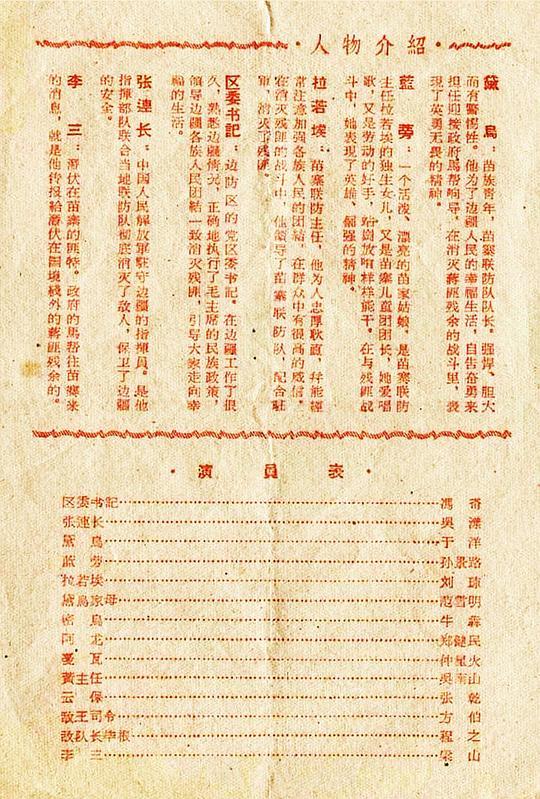 ·人物介紹·
黛　烏：苗族青年，苗寨联防队队长。强悍、胆大
而有警惕性。他为了边疆人民的幸福生活，自告奋勇来
担任迎接政府馬帮响导，在消灭蒋匪残余的战斗里，表
現了英勇无畏的精神。
藍　蒡：一个活泼、漂亮的苗家姑娘，是苗寨联防
主任拉若埃的独生女儿，又是苗寨儿童团团长，她爱唱
歌，又是劳动的好手，站崗放哨样样能干。在与残匪战
斗中，她表現了英雄、倔强的精神。
拉若埃：苗寨联防主任，他为人忠厚耿直，幷能經
常注意加强各族人民的团結，在群众中有很高的威信。
在消灭残匪的战斗中，他領导了苗寨联防队，配合駐
軍，消灭了残匪。
区委书記：边防区的党区委书記。在边疆工作了很
久，熟悉边疆情况，正确地执行了毛主席的民族政策，
領导边疆各族人民团結一致消灭残匪，引导大家走向幸
福的生活。
张連长：中国人民解放軍駐守边疆的指揮員。是他
指揮部队联合当地联防队彻底消灭了敌人，保卫了边疆
的安全。
李　三：潛伏在苗寨的匪特。政府的馬帮往苗寨来
的消息，就是他传报給潛伏在国境綫外的蔣匪残余的。
·演員表·
区委书記 馮　奇
张連长 吳　漾
黛　烏 于　洋
蓝　蒡 孙景路
拉若埃 刘　琼
黛烏家母 范雪明
密　烏 牛　犇
阿　龙 郑健民
戛　瓦 仲星火
黃主任 吳南山
云　保 张　乾
敌王司令 方　伯
敌队长 程　之
李　三 梁　山